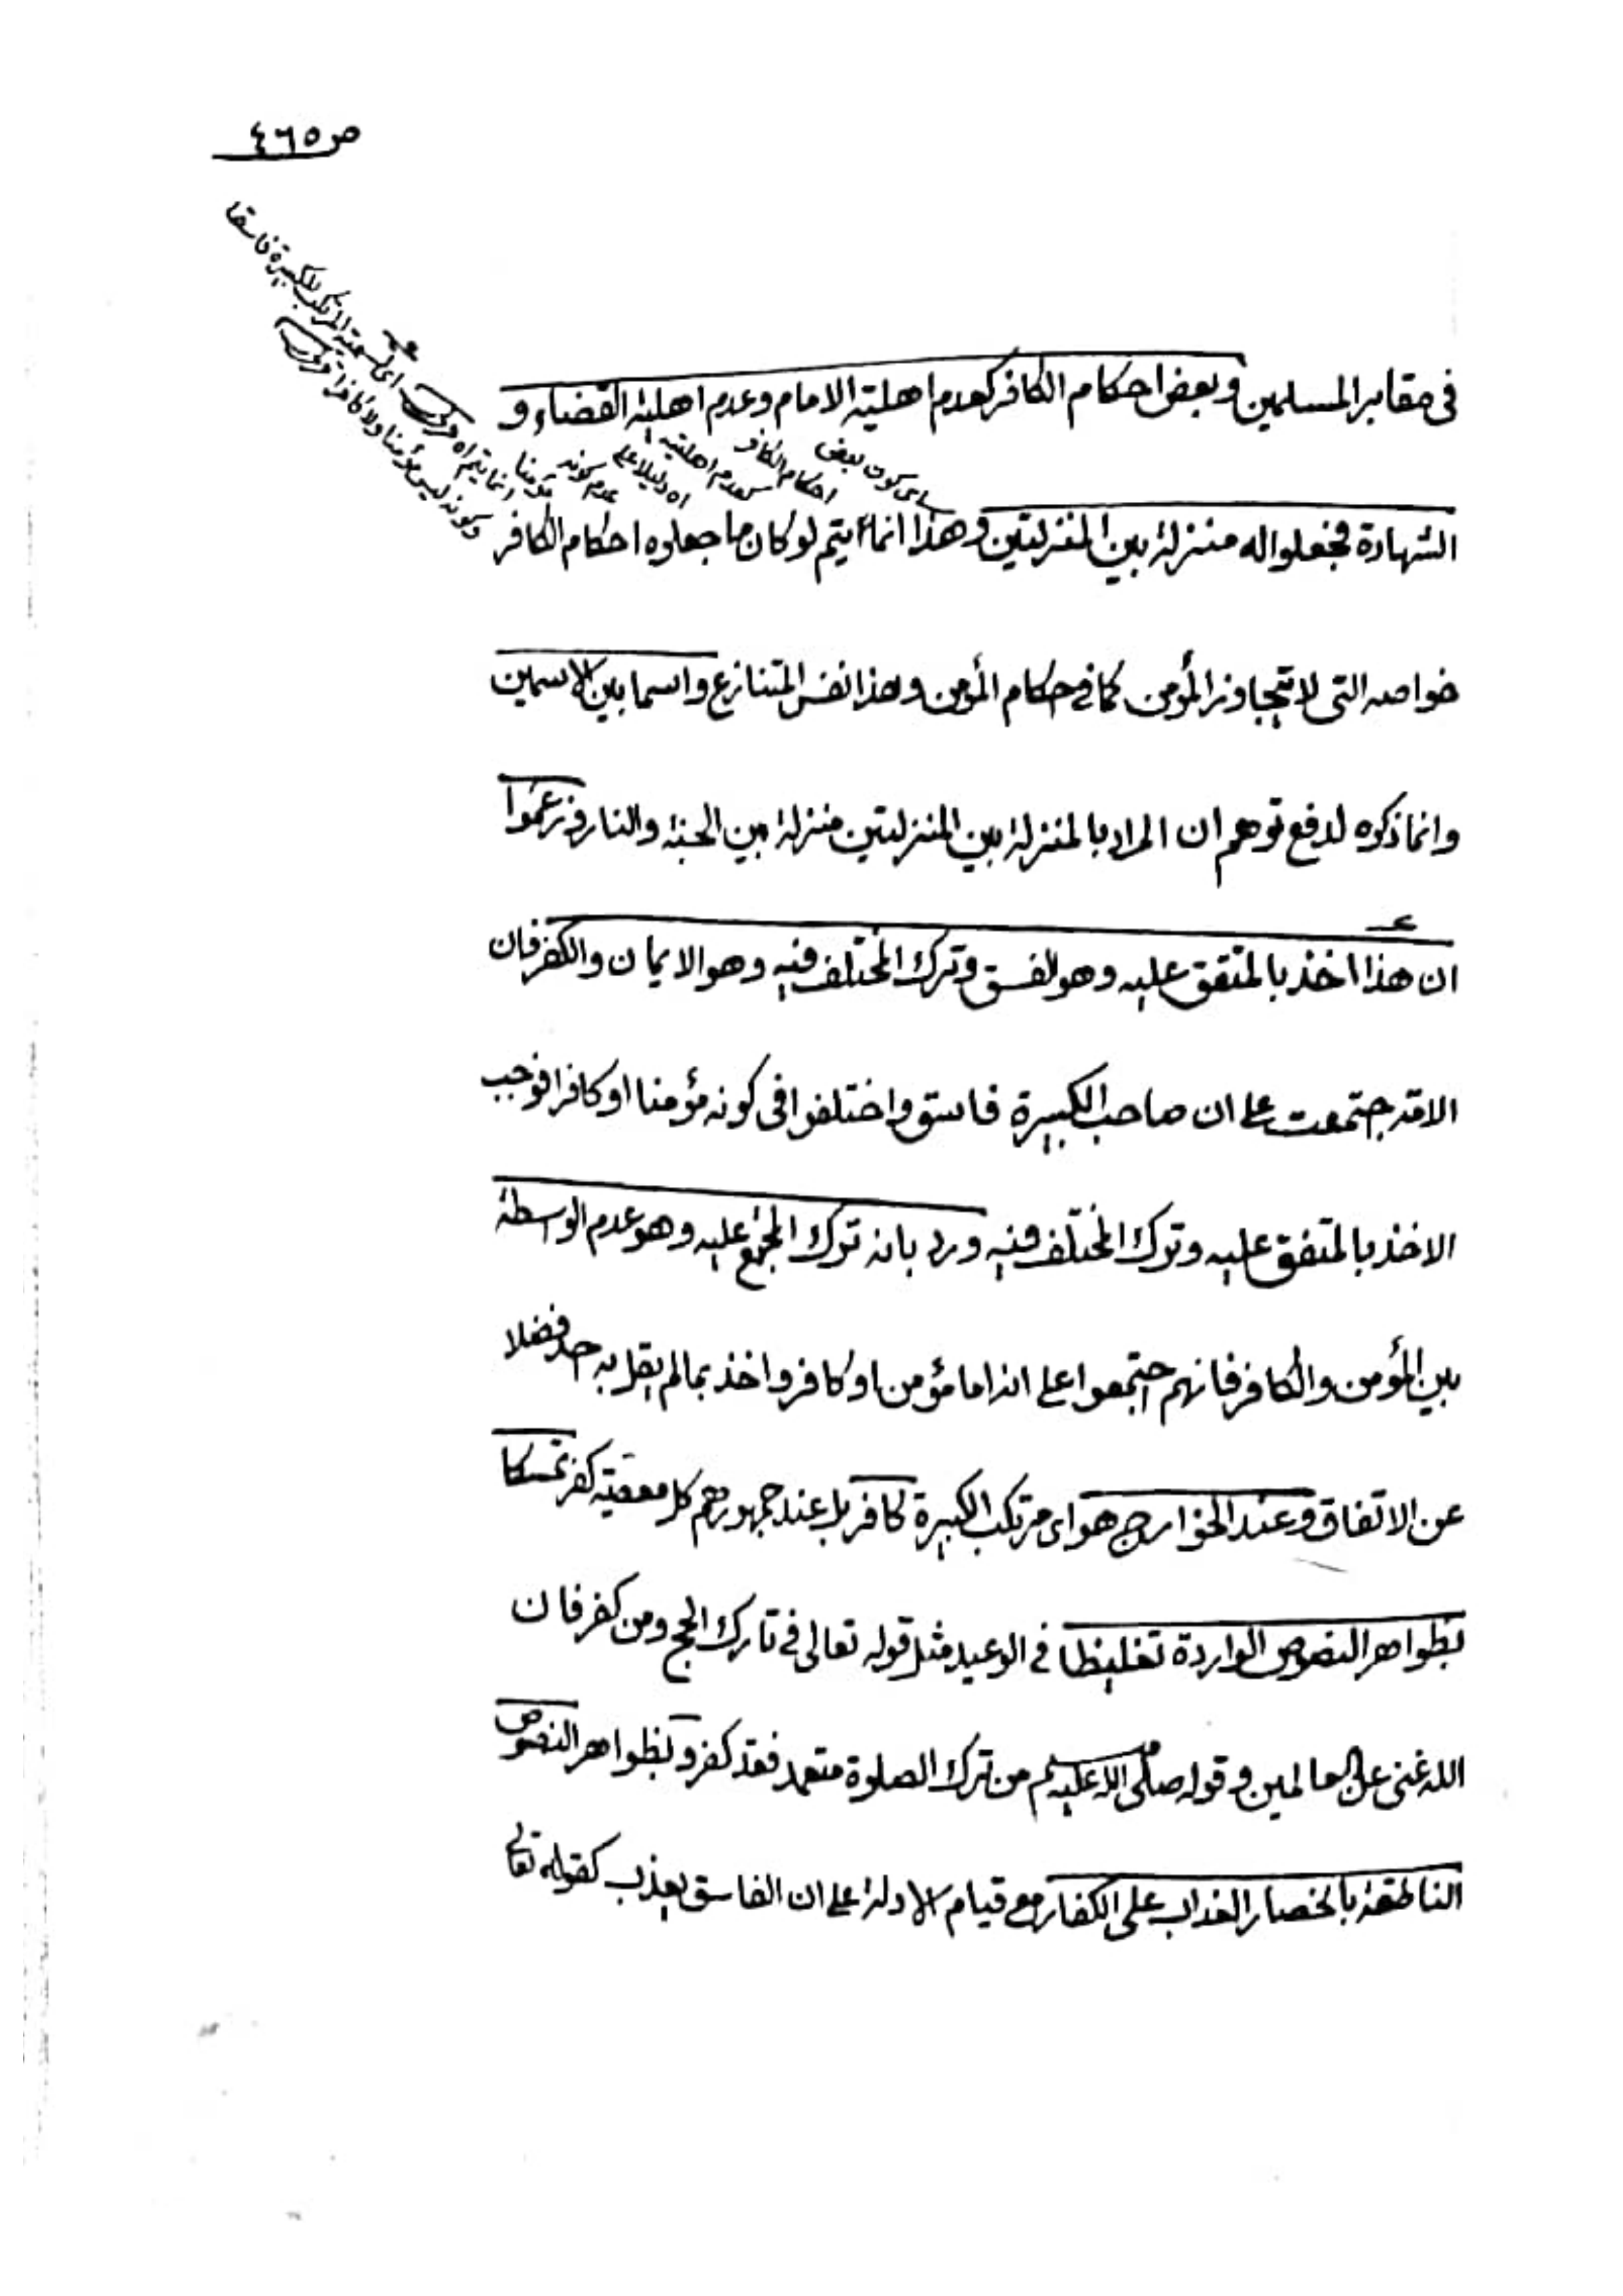 ص٤٦٥
في مقابر المسلمين وبعض احكام الكافر كعدم اهلية الامام وعدم اهلية القضاء و
اي كون بعض
احكام الكافر
كعدم اهلية
اه دليلا على
عدم كونه
مؤمنا
انما يتم اه
اى تسمية المرتكب للكبيرة فاسقا
وكونه ليس مؤمنا ولا كافرا
الشهادة فجعلوا له منزلة بين المنزلتين وهذا انما يتم لو كان ما جعلوه احكام الكافر
خواصه التى لا تتجاوز المؤمن كما في احكام المؤمن وهذا نفس المتنازع واسما بين الاسمين
وانما ذكره لدفع توهم ان المراد بالمنزلة بين المنزلتين منزلة بين الجنة والنار وزعموا
ان هذا اخذ بالمتفق عليه وهو الفسق وترك المختلف فيه وهو الايمان والكفر فان
الامة جتمعت على ان صاحب الكبيرة فاسق واختلفوا في كونه مؤمنا او كافرا فوجب
الاخذ بالمتفق عليه وترك المختلف فيه ورد بانه ترك المجمع عليه وهو عدم الواسطة
بين المؤمن والكافر فانهم اجتمعوا على انه اما مؤمن او كافر واخذ بما لم يقل به احد فضلا
عن الاتفاق وعند الخوارج هو اى مرتكب الكبيرة كافر بل عند جمهورهم كل معصية كفر تمسكا
بظواهر النصوص الواردة تغليظا في الوعيد مثل قوله تعالى في تارك الحج ومن كفر فان
الله غنى عن العالمين وقوله صلى الله عليه وسلم من ترك الصلوة متعمد فقد كفر وبظواهر النصوص
الناطقة بانحصار العذاب على الكفار مع قيام الادلة على ان الفاسق يعذب كقوله تعالى